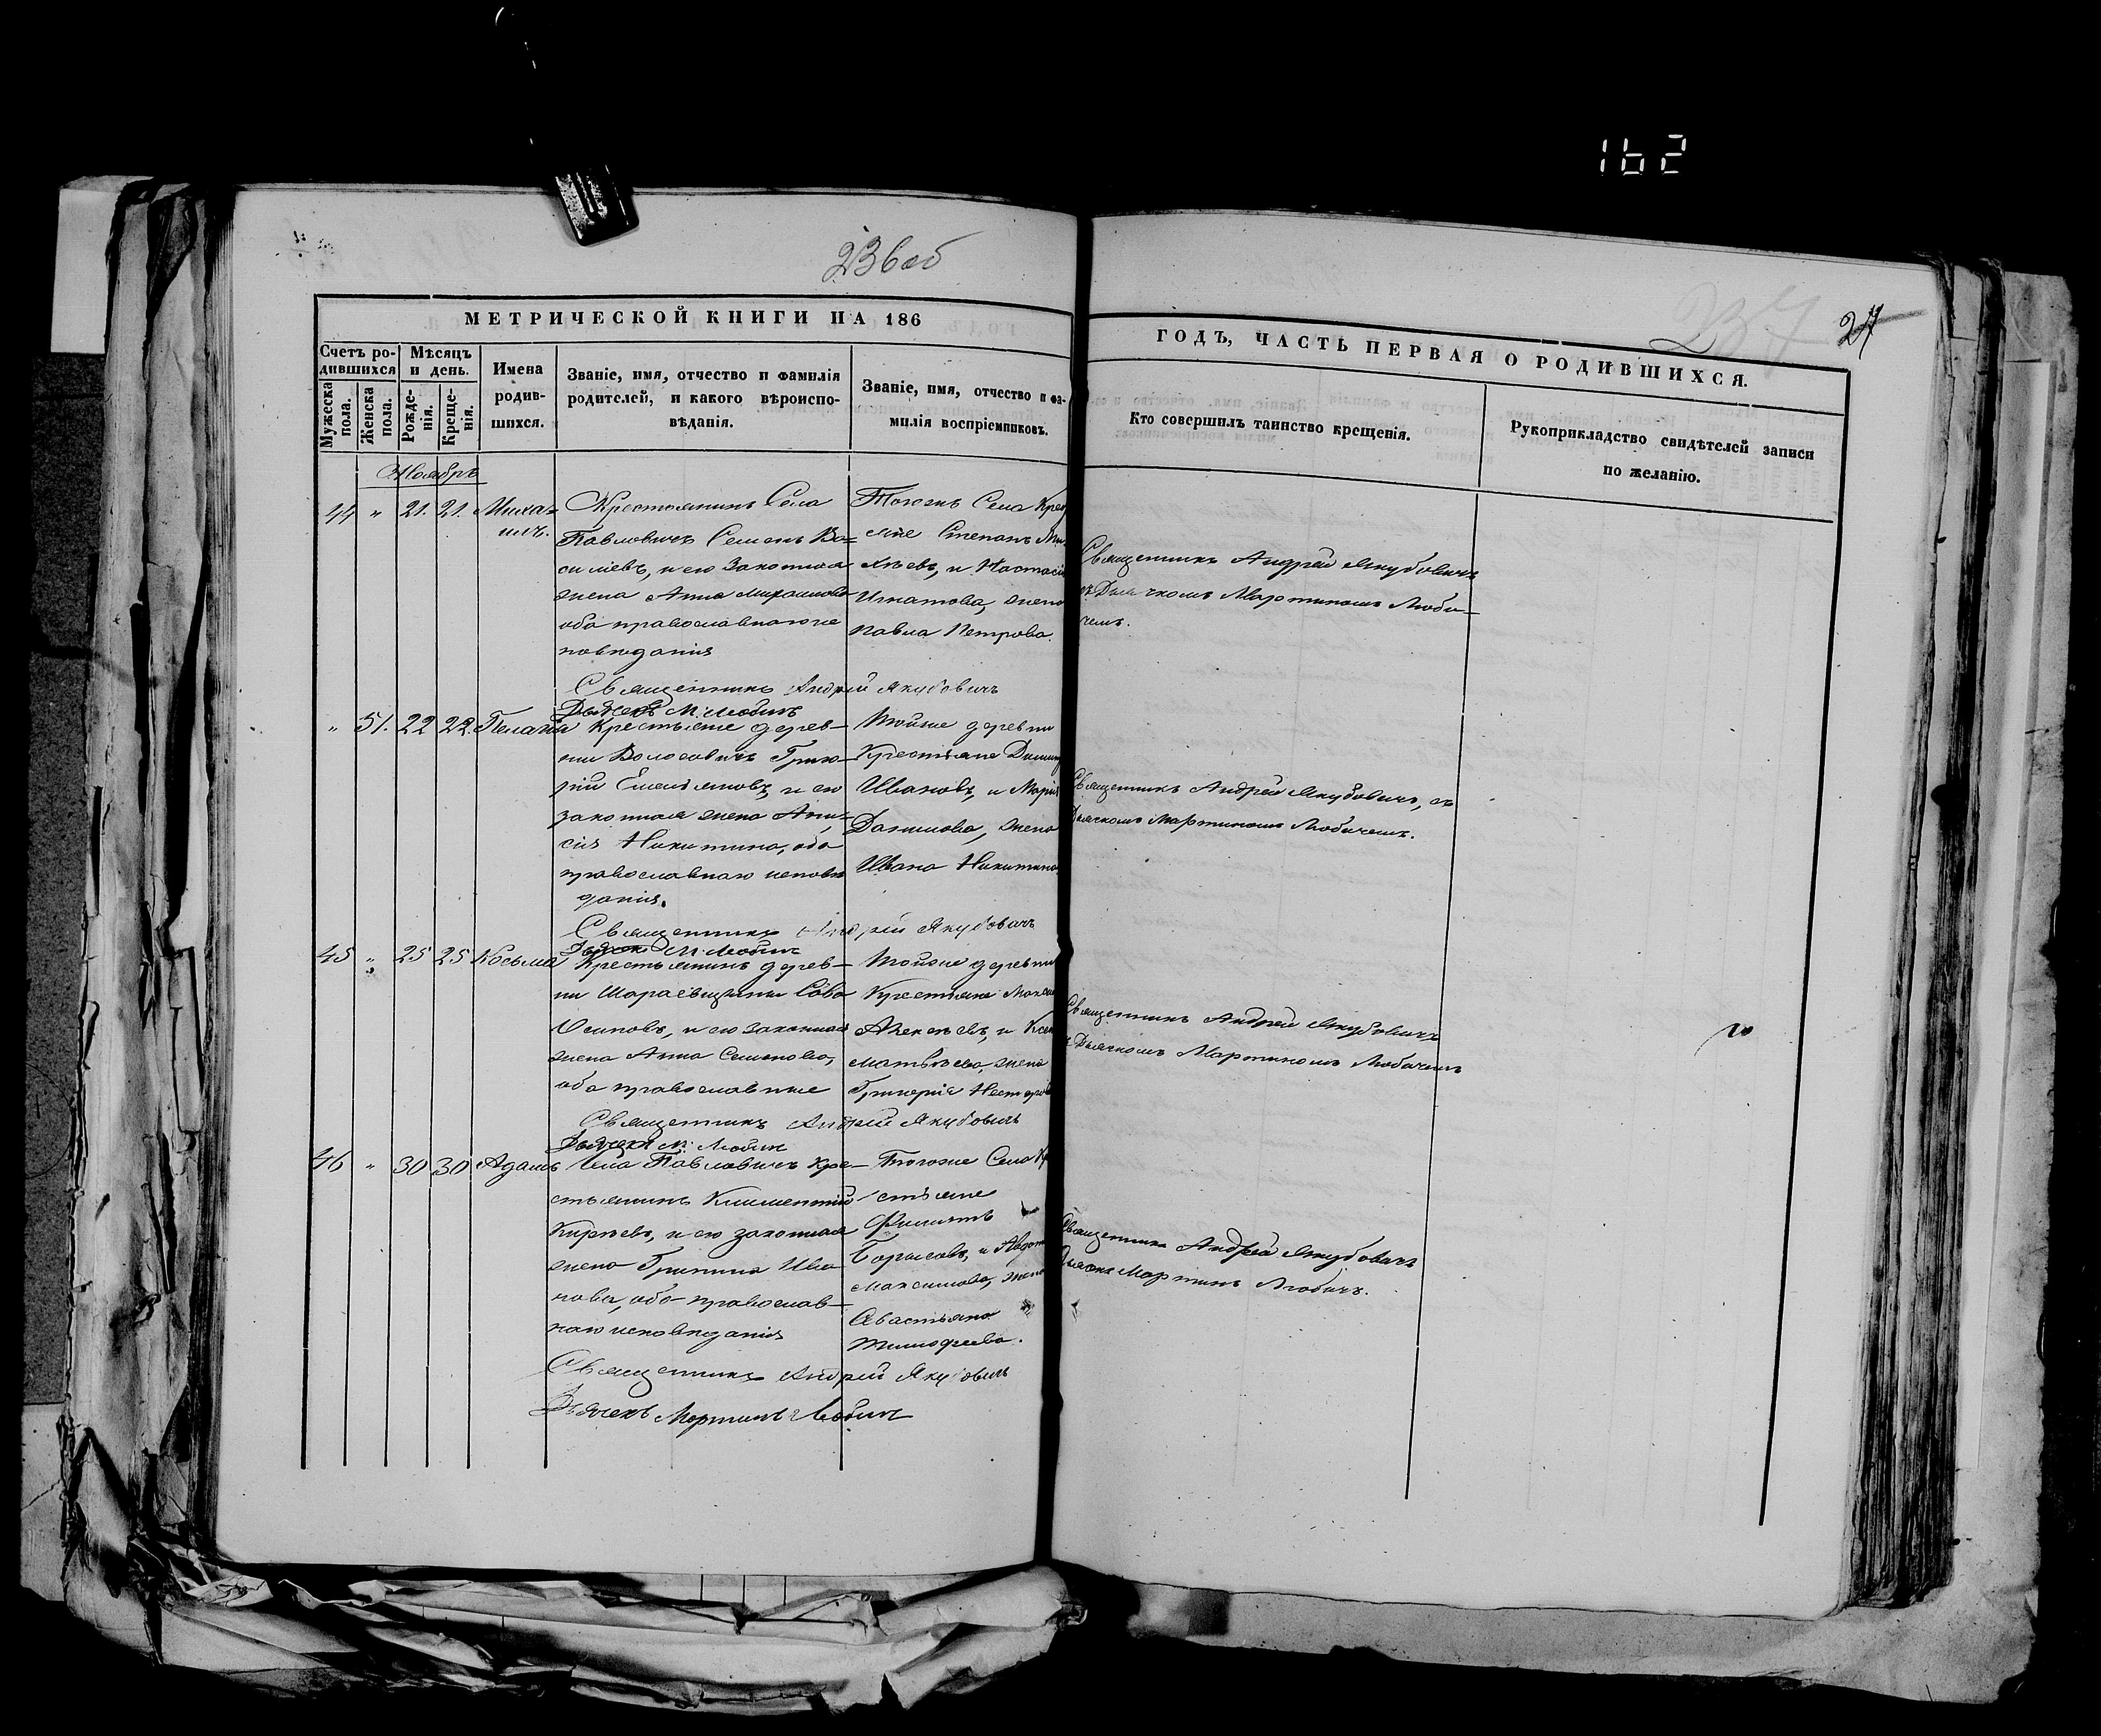 162
236об
237
27
МЕТРИЧЕСКОЙ КНИГИ НА 186
ГОДЪ, ЧАСТЬ ПЕРВАЯ О РОДИВШИХСЯ.
Счетъ ро-
дившихся
Мужеска
пола.
Женска
пола.
Мѣсяцъ
и день.
Рожде-
нія.
Креще-
нія.
Имена
родив-
шихся.
Званіе, имя, отчество и фамилія
родителей, и какого вѣроиспо-
вѣданія.
Званіе, имя, отчество и фа-
милія воспріемниковъ.
Кто совершилъ таинство крещенія.
Рукоприкладство свидѣтелей записи
по желанію.
Ноябрь
44 " 21. 21. Миха-
илъ.
Крестьянинъ Села
Павловичъ Семенъ Ва=
силіевъ, и его законная
жена Анна Михаилова
оба православнаго ис
повѣданія
Тогожъ Села Крес
яне Степанъ Ми
хѣевъ, и Настасія
Игнатова, жена
Павла Петрова.
Священникъ Андрей Якубовичъ
съ Дьячкомъ Мартиномъ Люби-
чемъ.
Священникъ Андрей Якубовичъ
Дьячекъ М. Любичъ
" 51. 22 22. Пелагія
Крестьяне дерев-
ни Волосовичъ Григо-
рій Емельяновъ, и его
законная жена Ани-
сія Никитина, оба
православнаго исповѣ
данія.
Тойже деревни
Крестьяне Димит
Ивановъ, и Марія
Данилова, жена
Ивана Никитина
Священникъ Андрей Якубовичъ, съ
Дьячкомъ Мартиномъ Любичемъ.
Священникъ Андрей Якубовичъ
Дьячекъ М. Любичъ
45 " 25 25 Косьма
Крестьянинъ дерев-
ни Шараевщины Сава
Осиповъ, и его законная
жена Анна Семенова,
оба православные
Тойже деревни
Крестьяне
Алексѣевъ, и
Матвѣева, жена
Григорія Нестеров
Священникъ Андрей Якубовичъ
съ Дьячкомъ Мартиномъ Любичемъ
Священникъ Андрей Якубовичъ
Дьячекъ М. Любичъ
46 " 30 30 Адамъ
Села Павловичъ Кре-
стьянинъ Климентій
Кирѣевъ, и его законная
жена Грипина Ива-
нова, оба православ-
наго исповѣданія
Тогоже Села Кр
стьяне
Филиппъ
Борисовъ, и Авдот
Максимова, жена
Авастьяна
Тимофеева.
Священникъ Андрей Якубовичъ
Дьячекъ Мартинъ Любичъ.
Священникъ Андрей Якубовичъ
Дьячекъ Мартинъ Любичъ